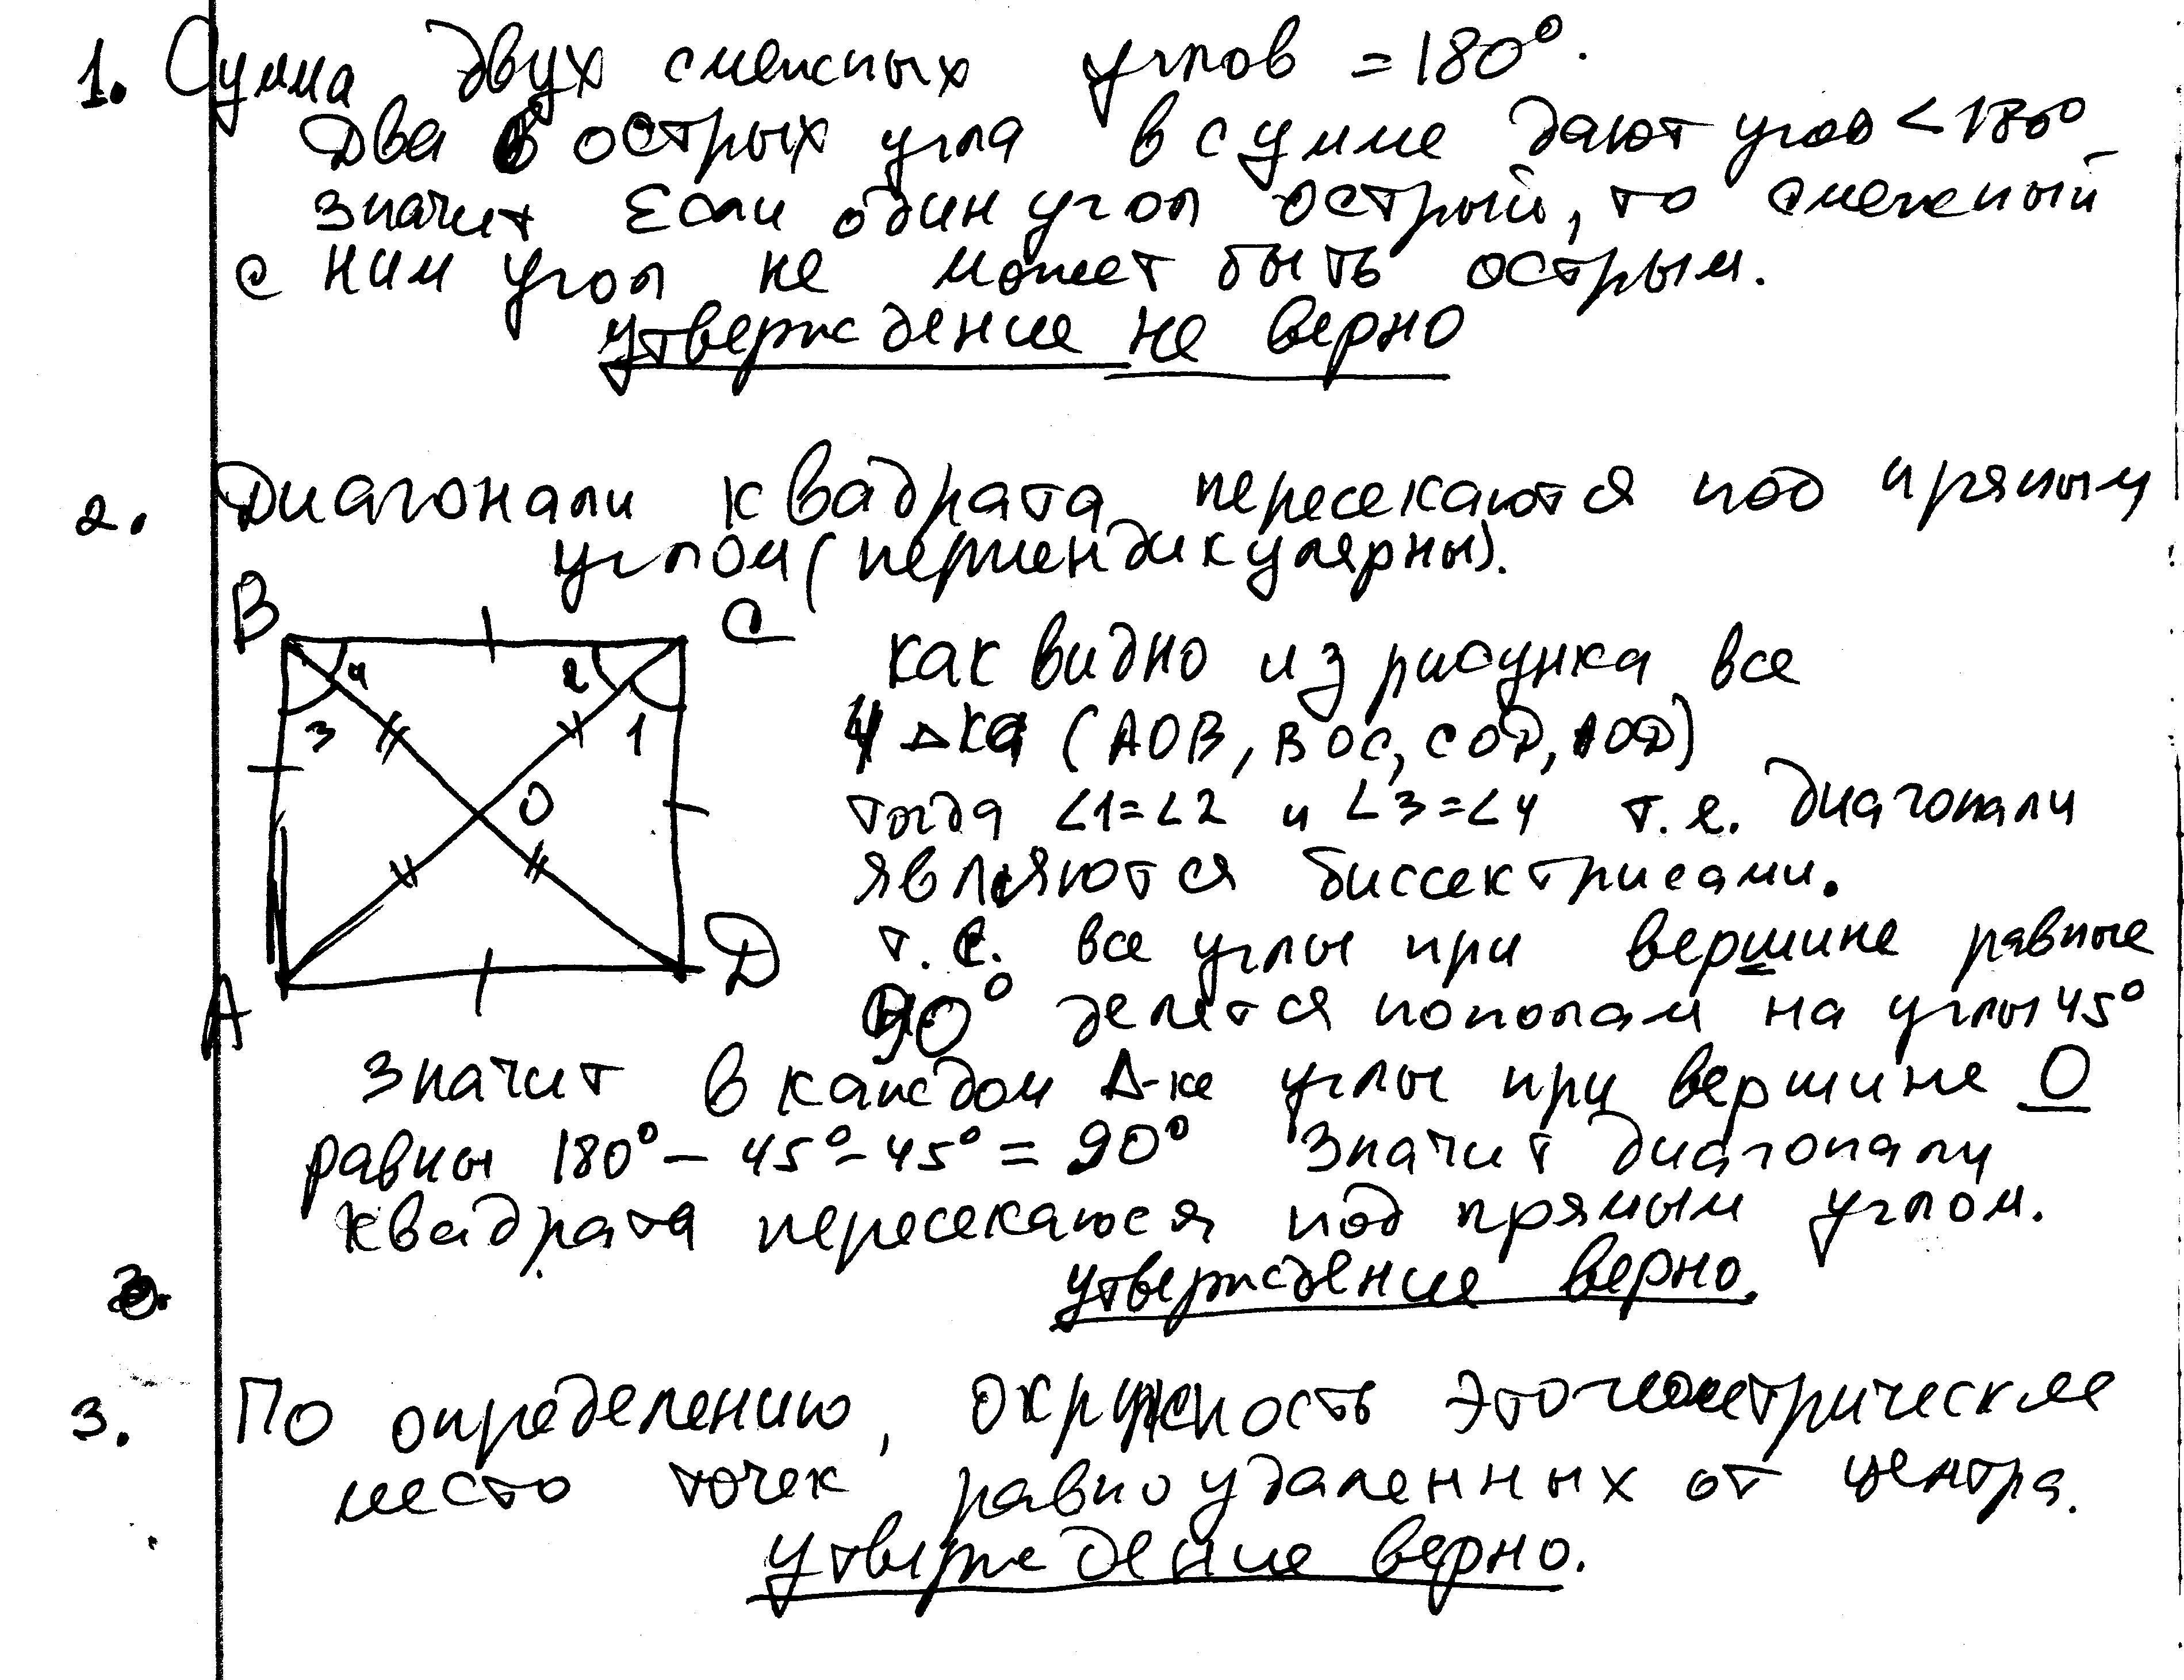 1. Сумма двух смежных углов = 180°.
Два острых угла в сумме дают угол < 180°
значит Если один угол острый, то смежный
с ним угол не может быть острым.
утверждение не верно
2. Диагонали квадрата пересекаются под прямым
углом (перпендикулярны).
B C
4 2
3 1
O
A D
как видно из рисунка все
4 Δка (AOB, BOC, COD, AOD)
тогда ∠1=∠2 и ∠3=∠4 т.е. диагонали
являются биссектрисами.
т.е. все углы при вершине равные
90° делятся пополам на углы 45°
значит в каждом Δ-ке углы при вершине O
равны 180° - 45° - 45° = 90° Значит диагонали
квадрата пересекаюся под прямым углом.
утверждение верно.
3. По определению, окружность это геометрическое
место точек равноудаленных от центра.
утверждение верно.